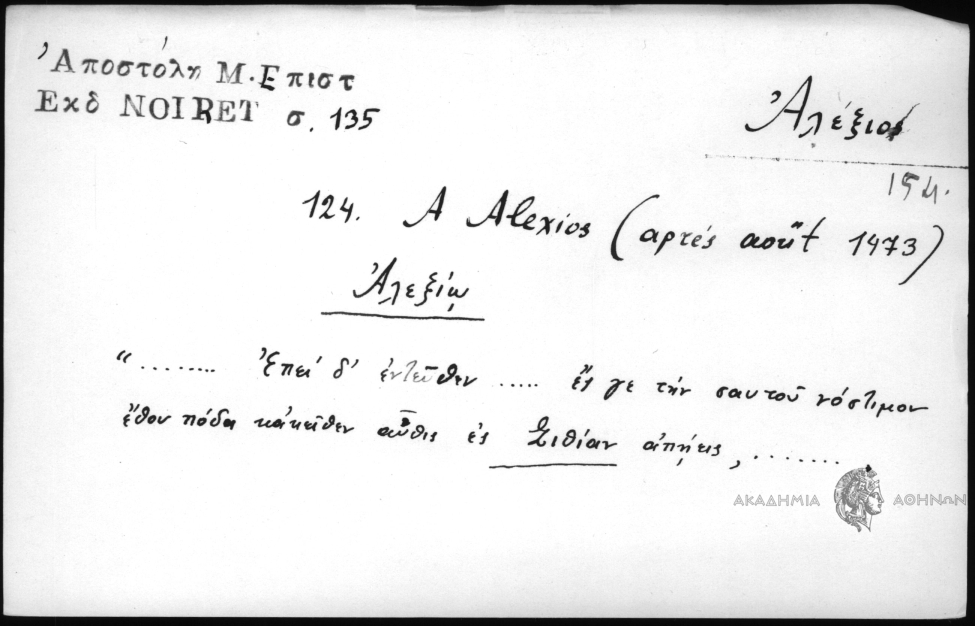 Ἀποστόλη Μ. Επιστ
Εκδ NOIRET σ. 135
Ἀλέξιος
154.
124. A Alexios (aprés août 1473)
Ἀλεξίῳ
“ ........ Ἐπεί δ' ἐντεῦθεν ..... ἔς γε τήν σαυτοῦ νόστιμον
ἔθου πόδα κἀκεῖθεν αὖθις ἐς Σιθίαν ἀπῄεις, ........
ΑΚΑΔΗΜΙΑ ΑΘΗΝΩΝ